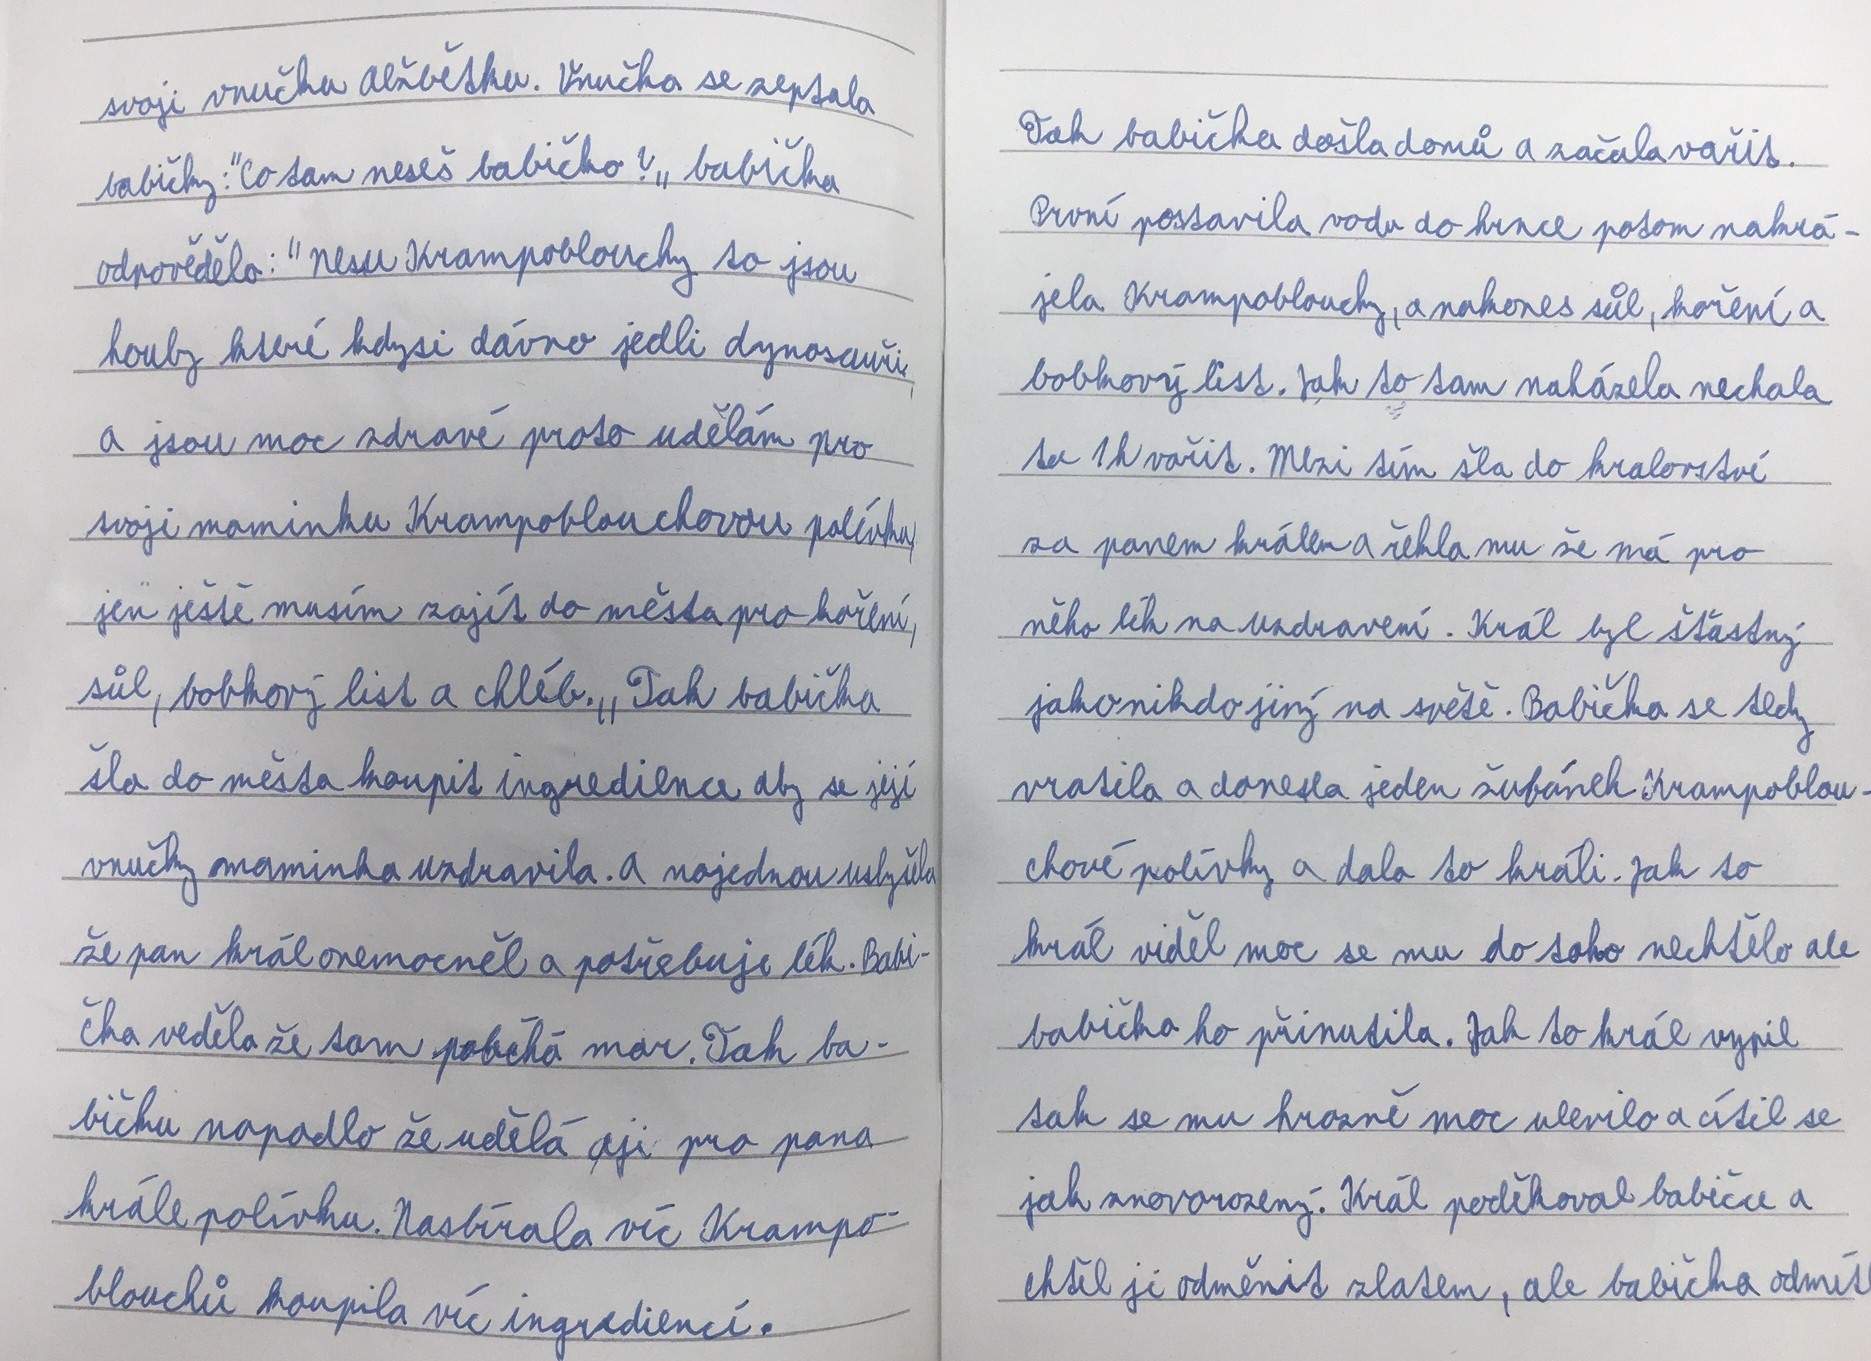 svoji vnučku Alžbětku. Vnučka se zeptala
babičky:"Co tam neseš babičko?„ babička
odpověděla:"Nesu Krampoblouchy to jsou
houby které kdysi dávno jedli dynosauři,
a jsou moc zdravé proto udělám pro
svoji maminku Krampoblouchovou polívku,
jen ještě musím zajít do města pro koření,
sůl, bobkový list a chléb.„ Tak babička
šla do města koupit ingredience aby se její
vnučky maminka uzdravila. A najednou uslyšela
že pan král onemocněl a potřebuje lék. Babi-
čka věděla že tam pobíhá mor. Tak ba-
bičku napadlo že udělá aji pro pana
krále polívku. Nasbírala víc Krampo-
blouchů koupila víc ingrediencí.
Tak babička došla domů a začala vařit.
První postavila vodu do hrnce potom nakrá-
jela Krampoblouchy, a nakonec sůl, koření a
bobkový list. Jak to tam naházela nechala
to 1h vařit. Mezi tím šla do kralovství
za panem králem a řekla mu že má pro
něho lék na uzdravení. Král byl štastný
jako nikdo jiný na světě. Babička se tedy
vratila a donesla jeden žubánek Krampoblou-
chové polívky a dala to králi. Jak to
král viděl moc se mu do toho nechtělo ale
babička ho přinutila. Jak to král vypil
tak se mu hrozně moc ulevilo a cítil se
jak znovorozený. Král poděkoval babičce a
chtěl ji odměnit zlatem, ale babička odmítl